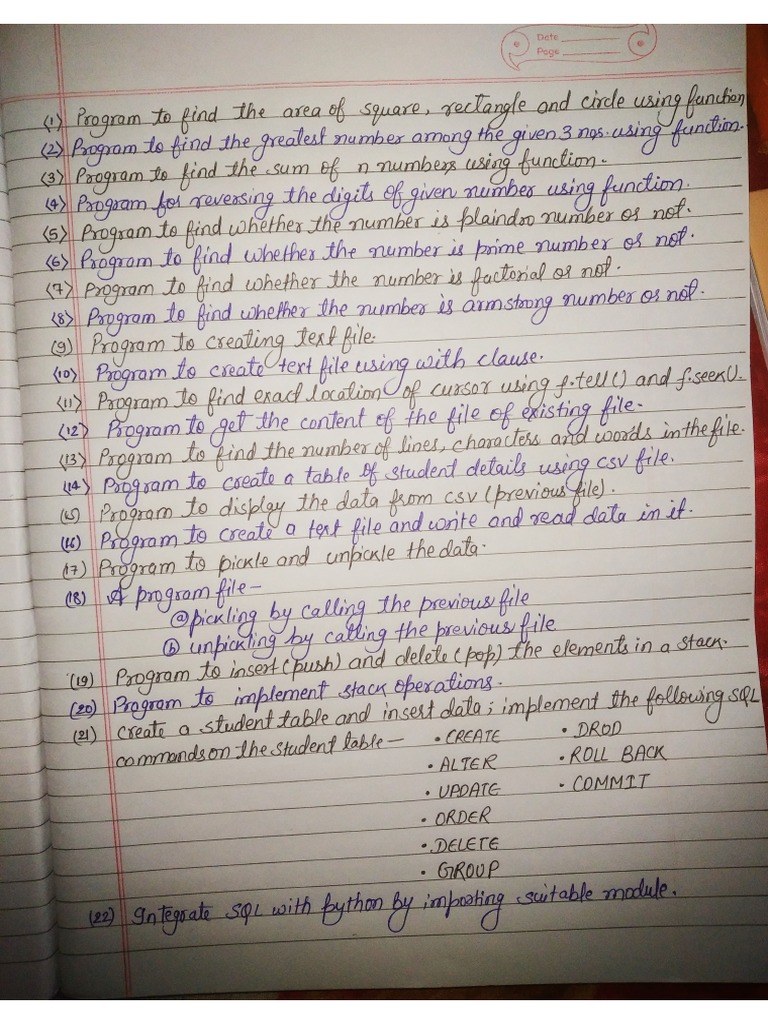 Date
Page
(1) Program to find the area of square, rectangle and circle using function
(2) Program to find the greatest number among the given 3 nos. using function.
(3) Program to find the sum of n numbers using function.
(4) Program for reversing the digits of given number using function.
(5) Program to find whether the number is plaindro number or not.
(6) Program to find whether the number is prime number or not.
(7) Program to find whether the number is factorial or not.
(8) Program to find whether the number is armstrong number or not.
(9) Program to creating text file.
(10) Program to create text file using with clause.
(11) Program to find exact location of cursor using f.tell() and f.seek().
(12) Program to get the content of the file of existing file.
(13) Program to find the number of lines, characters and words in the file.
(14) Program to create a table of student details using csv file.
(15) Program to display the data from csv (previous file).
(16) Program to create a text file and write and read data in it.
(17) Program to pickle and unpickle the data.
(18) A program file -
(a) pickling by calling the previous file
(b) unpickling by calling the previous file
(19) Program to insert (push) and delete (pop) the elements in a stack.
(20) Program to implement stack operations.
(21) Create a student table and insert data; implement the following SQL
commands on the student table - • CREATE • DROD
• ALTER • ROLL BACK
• UPDATE • COMMIT
• ORDER
• DELETE
• GROUP
(22) Integrate SQL with python by importing suitable module.